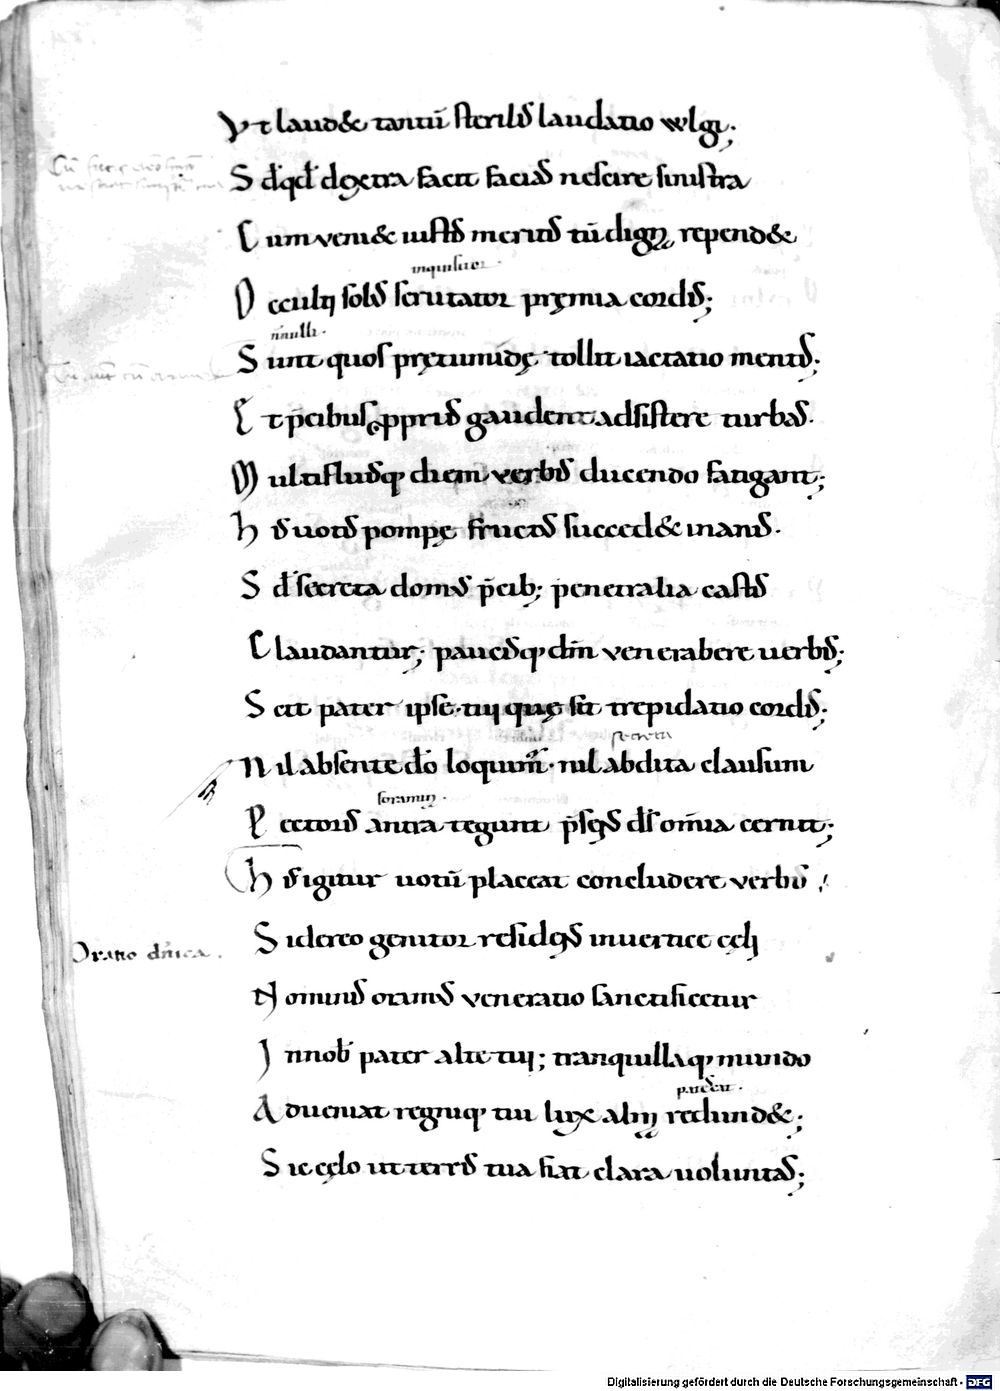 Vt laud& tantū sterilis laudatio wlgi;
S; qđ dextra facit facias nescire sinistra
Cum ueni& iustis meritis tū digna repend&
inquisitor
Occulti solus scrutator pręmia cordis;
nnulli.
Sunt quos prętumidę tollit iactatio mentis.
Et p̄cibus ꝓpriis gaudent adsistere turbas.
Multifluisq; diem verbis ducendo fatigant;
His uotis pompę fructus succed& inanis.
S; secreta domus p̄cib; penetralia castis
Claudantur; paucisq; dn̄m venerabere uerbis;
Scit pater ipse tui quę sit trepidatio cordis;
secreta
Nil absente dō loquim̄. nil abdita clausum
foramina.
Pectoris antra tegunt p̄sens ds̄ om̄ia cernit;
His igitur uotū placeat concludere verbis
Sidereo genitor residens inuertice cęli
Oratio dn̄ica.
Nominis oramus veneratio sanctificetur
Innob̄ pater alte tui; tranquillaq; mundo
Adueniat regnūq; tuū lux alma redund&;
Sic cęlo ut terris tua fiat clara uoluntas;
Digitalisierung gefördert durch die Deutsche Forschungsgemeinschaft - DFG